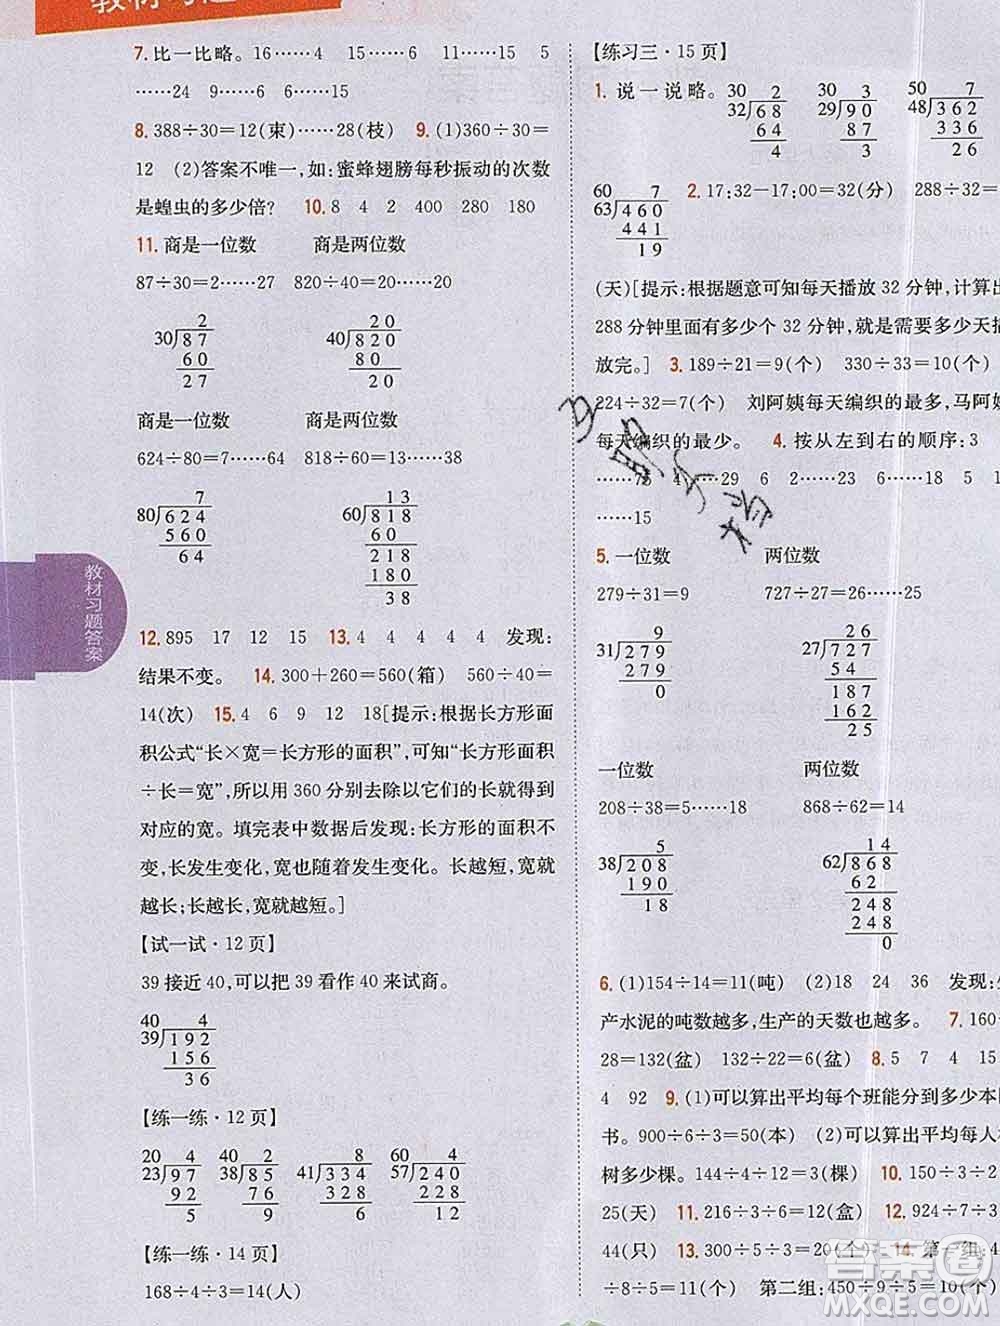 教材习题
7. 比一比略。 16……4 15……6 11……15 5
……24 9……6 6……15
8. 388÷30=12(束)……28(枝) 9. (1)360÷30=
12 (2)答案不唯一,如:蜜蜂翅膀每秒振动的次数
是蝗虫的多少倍? 10. 8 4 2 400 280 180
11. 商是一位数 商是两位数
87÷30=2……27 820÷40=20……20
2
30 87
60
27
20
40 820
80
20
商是一位数 商是两位数
624÷80=7……64 818÷60=13……38
7
80 624
560
64
13
60 818
60
218
180
38
12. 895 17 12 15 13. 4 4 4 4 4 发现:
结果不变。 14. 300+260=560(箱) 560÷40=
14(次) 15. 4 6 9 12 18[提示:根据长方形面
积公式“长×宽=长方形的面积”,可知“长方形面积
÷长=宽”,所以用 360 分别去除以它们的长得到
对应的宽。填完表中数据后发现:长方形的面积不
变,长发生变化,宽也随着发生变化。长越短,宽就
越长;长越长,宽就越短。]
【试一试·12 页】
39 接近 40,可以把 39 看作 40 来试商。
40 4
39 192
156
36
【练一练·12 页】
20 4
23 97
92
5
40 2
38 85
76
9
8
41 334
328
6
60 4
57 240
228
12
【练一练·14 页】
168÷4÷3=14(人)
教材习题答案
【练习三·15 页】
1. 说一说略。
30 2
32 68
64
4
30 3
29 90
87
3
50 7
48 362
336
26
60 7
63 460
441
19
2. 17:32-17:00=32(分) 288÷32=
(天)[提示:根据题意可知每天播放 32 分钟,计算出
288 分钟里面有多少个 32 分钟,就是需要多少天播
放完。] 3. 189÷21=9(个) 330÷33=10(个)
224÷32=7(个) 刘阿姨每天编织的最多,马阿姨
每天编织的最少。 4. 按从左到右的顺序:3
……75 4……29 6 2……6……18 5 1
……15
5. 一位数 两位数
279÷31=9 727÷27=26……25
9
31 279
279
0
26
27 727
54
187
162
25
一位数 两位数
208÷38=5……18 868÷62=14
5
38 208
190
18
14
62 868
62
248
248
0
6. (1)154÷14=11(吨) (2)18 24 36 发现:
产水泥的吨数越多,生产的天数也越多。 7. 160-
28=132(盆) 132÷22=6(盆) 8. 5 7 4 15
4 92 9. (1)可以算出平均每个班能分到多少本
书。900÷6÷3=50(本) (2)可以算出平均每人
树多少棵。144÷4÷12=3(棵) 10. 150÷3÷2
25(天) 11. 216÷3÷6=12(盒) 12. 924÷7÷3
44(只) 13. 300÷5÷3=20(个) 14. 第一组:4
÷8÷5=11(个) 第二组:450÷9÷5=10(个)
答案圈
MXQE.COM